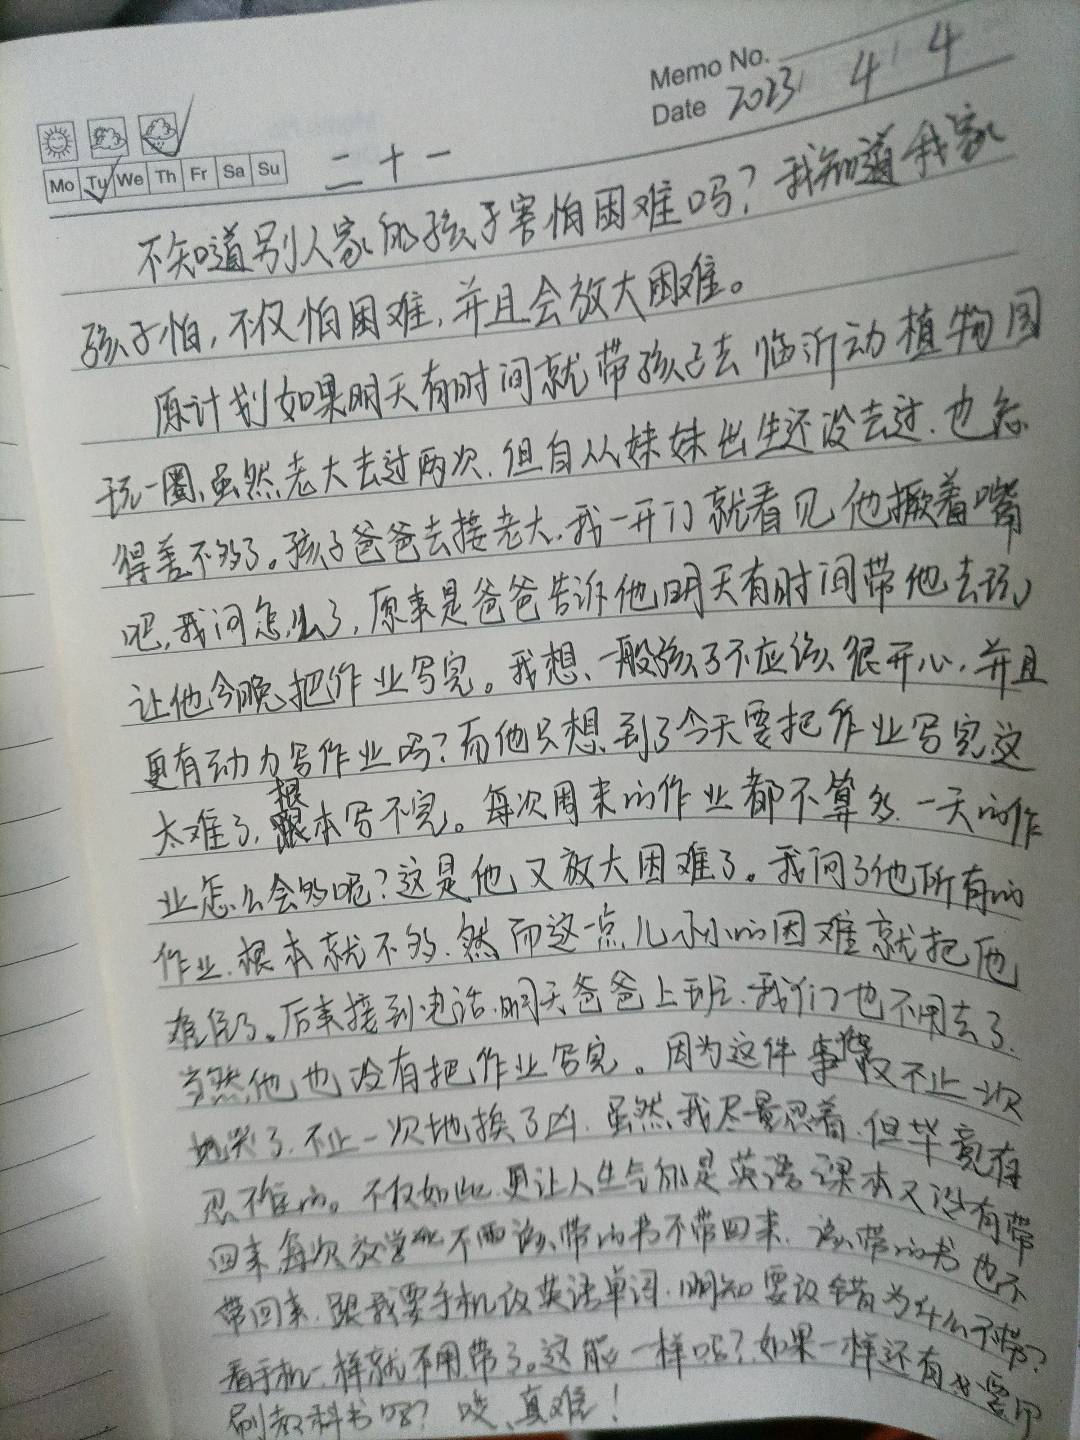 Memo No.
Date 2023 4 4
Mo Tu We Th Fr Sa Su
二十一
不知道别人家的孩子害怕困难吗？我知道我家
孩子怕，不仅怕困难，并且会放大困难。
原计划如果明天有时间就带孩子去临沂动植物园
玩一圈，虽然老大去过两次，但自从妹妹出生还没去过，也忘
得差不多了。孩子爸爸去接老大，我一开门就看见他撅着嘴
吧，我问怎么了，原来是爸爸告诉他明天有时间带他去玩，
让他今晚把作业写完。我想，一般孩子不应该很开心，并且
更有动力写作业吗？而他只想到了今天要把作业写完这
太难了，根本写不完。每次周末的作业都不算多，一天的作
业怎么会多呢？这是他又放大困难了。我问了他所有的
作业，根本就不多，然而这一点儿小小的困难就把他
难住了。后来接到电话，明天爸爸上班，我们也不用去了，
当然他也没有把作业写完。因为这件事他又不止一次
地哭了，不止一次地挨了凶，虽然我尽量忍着，但毕竟有
忍不住的。不仅如此，更让人生气的是英语课本又没有带
回来，每次放学不该带的书不带回来，该带的书也不
带回来，跟我要手机改英语单词，明知要改错为什么不带？
看手机一样就不用带了。这能一样吗？如果一样还有必要印
刷教科书吗？哎，真难！